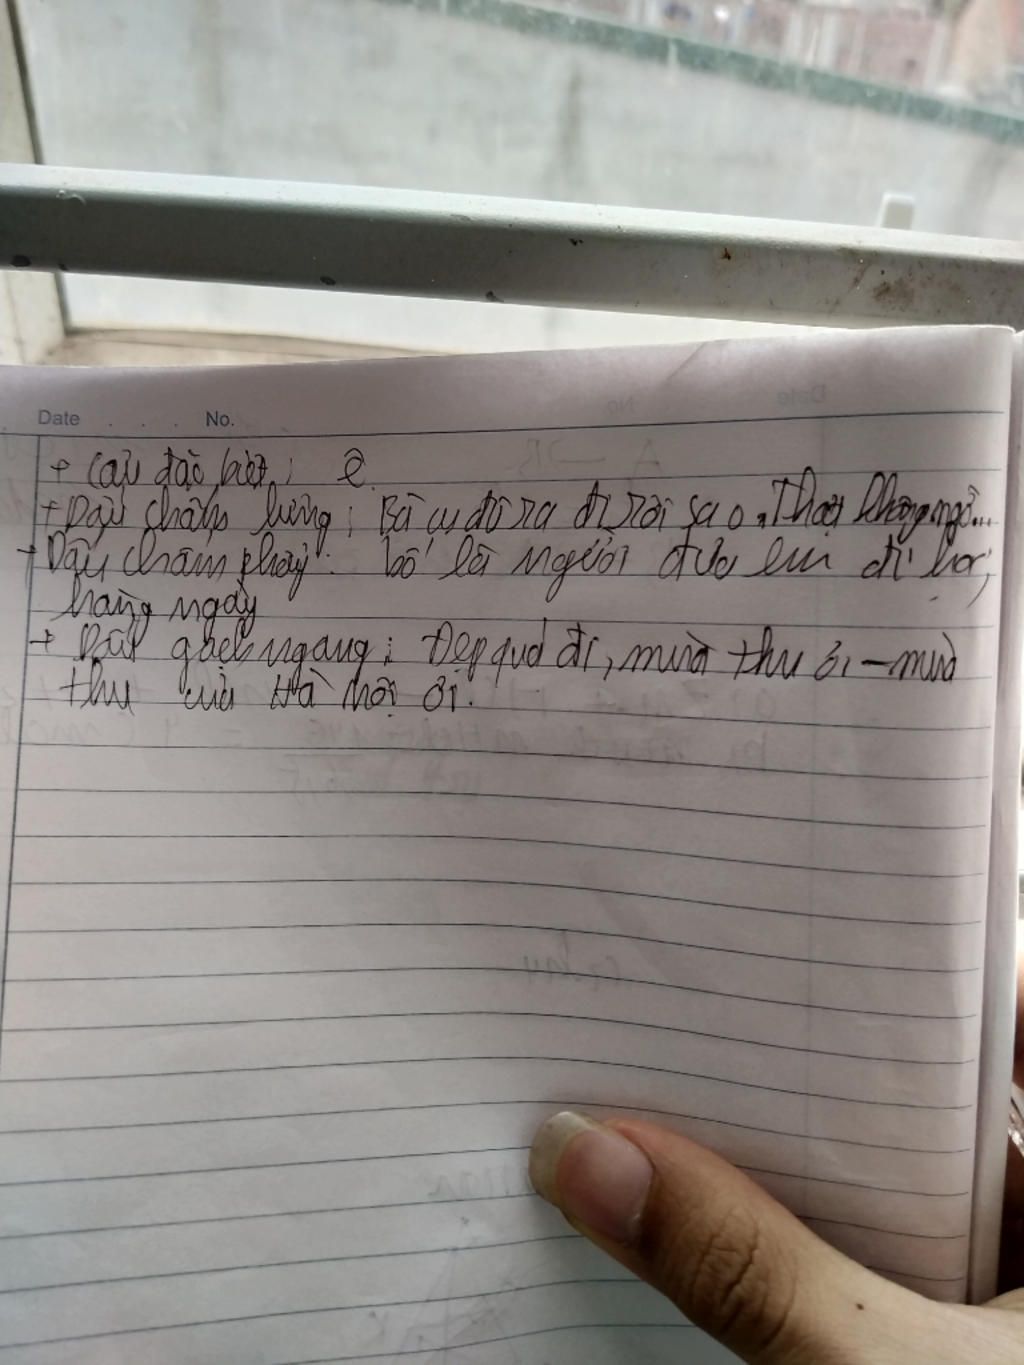 Date . . . No.
+ Câu đặc biệt: Ê
+ Dấu chấm lửng: Bà cụ đó ra đi rồi sao. Thật không ngờ...
+ Dấu chấm phẩy: bố là người đưa em đi học;
hằng ngày
+ Dấu gạch ngang: Đẹp quá đi, mùa thu ơi - mùa
thu của Hà Nội ơi.